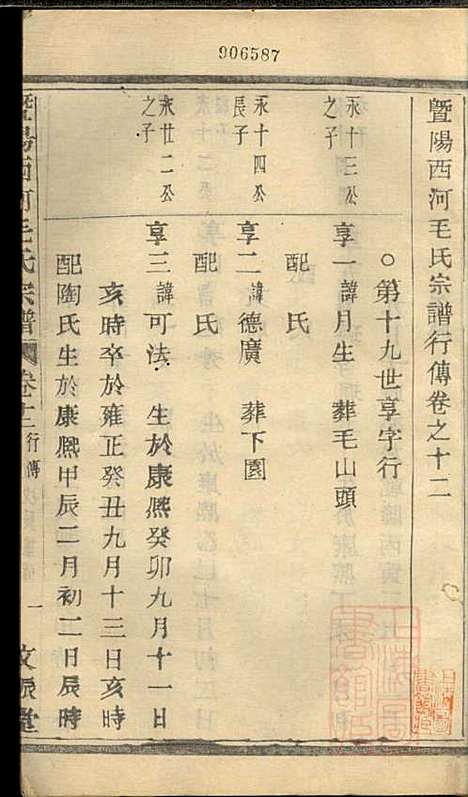 906587
暨陽西河毛氏宗譜行傳卷之十二
○第十九世享字行
永十三公之子
享一諱月生 葬毛山頭
配 氏
永十四公長子
享二諱德廣 葬下園
配 氏
永廿二公之子
享三諱可法 生於康熙癸卯九月十一日
亥時卒於雍正癸丑九月十三日亥時
配陶氏生於康熙甲辰二月初二日辰時
暨陽西河毛氏宗譜 卷十二 行傳 一